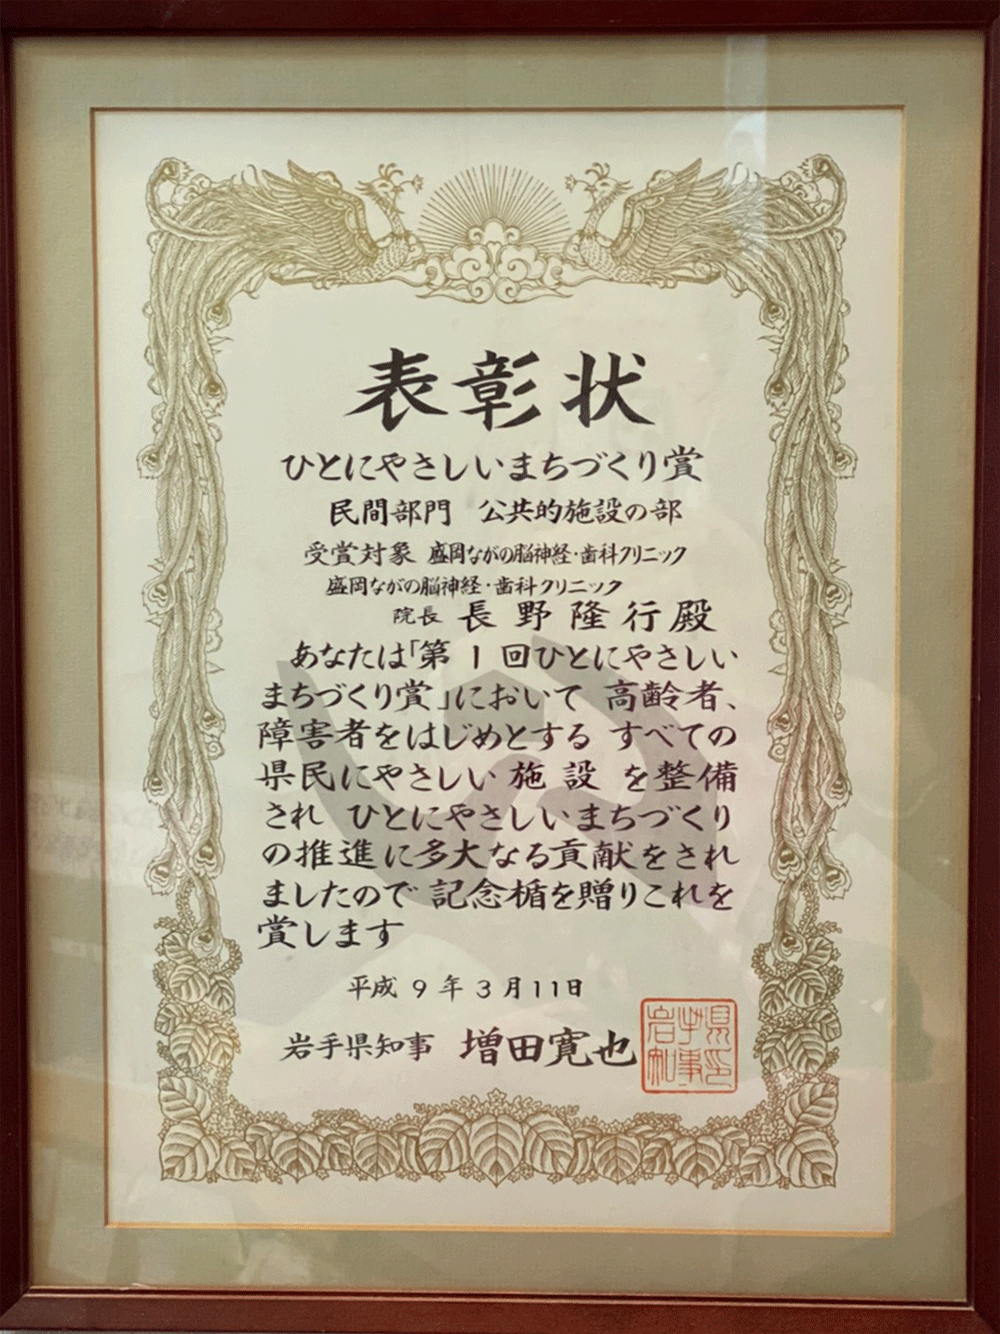 表彰状
ひとにやさしいまちづくり賞
民間部門 公共的施設の部
受賞対象 盛岡ながの脳神経・歯科クリニック
盛岡ながの脳神経・歯科クリニック
院長 長野隆行殿
あなたは「第1回ひとにやさしい
まちづくり賞」において 高齢者、
障害者をはじめとする すべての
県民にやさしい 施設 を整備
され ひとにやさしいまちづくり
の推進に多大なる貢献をされ
ましたので 記念楯を贈りこれを
賞します
平成 9 年 3 月 11 日
岩手県知事 増田寛也
岩手県知事印